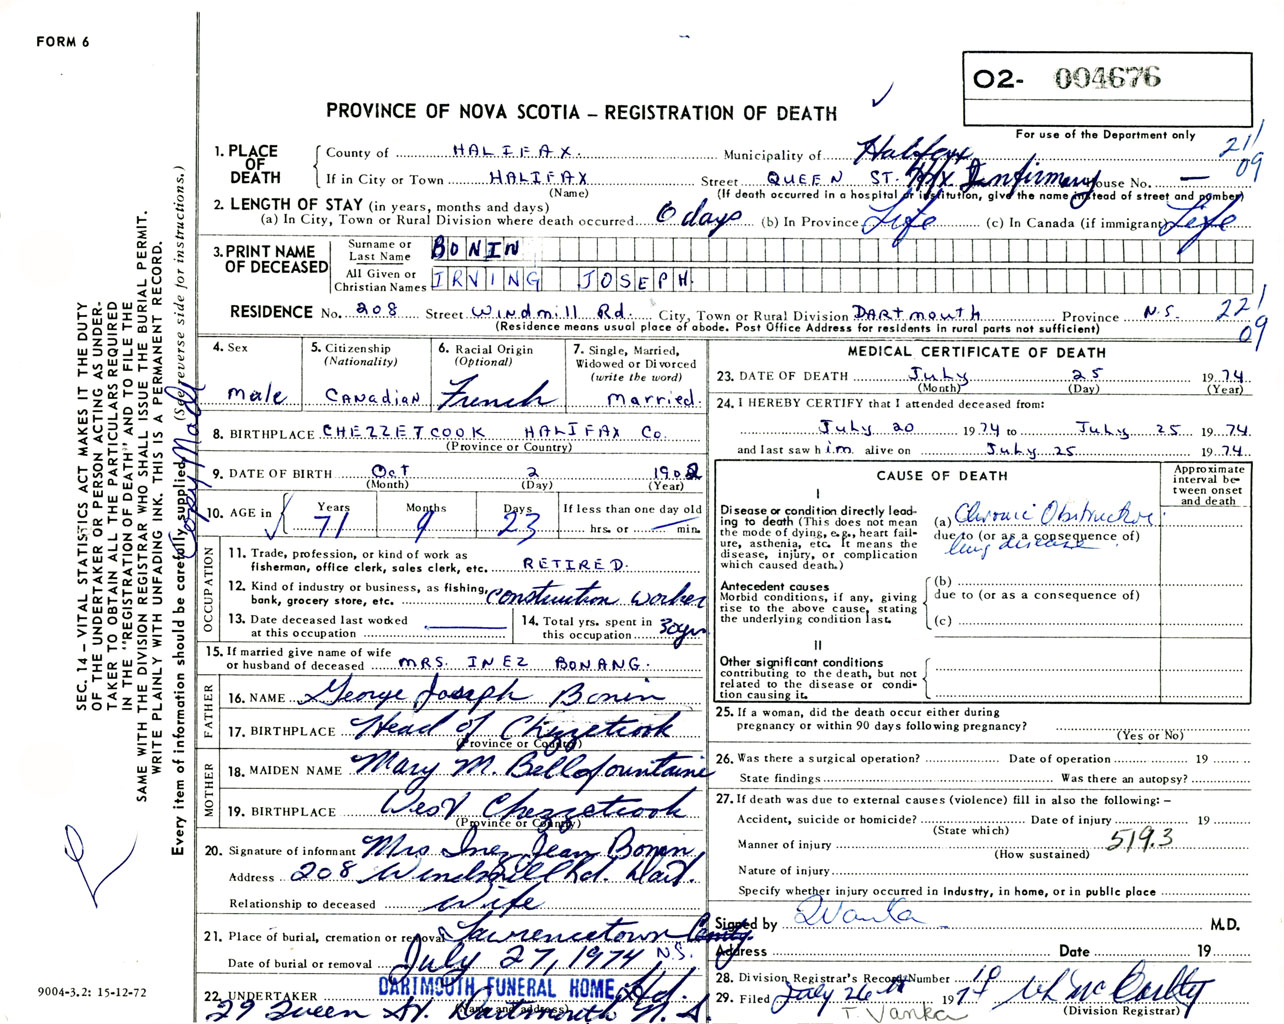 FORM 6
O2- 004676
PROVINCE OF NOVA SCOTIA – REGISTRATION OF DEATH
For use of the Department only
21/09
1. PLACE OF DEATH
County of HALIFAX. Municipality of Halifax
If in City or Town HALIFAX Street QUEEN ST. Hfx Infirmary House No. —
(Name) (If death occurred in a hospital or institution, give the name instead of street and number)
2. LENGTH OF STAY (in years, months and days)
(a) In City, Town or Rural Division where death occurred 6 days (b) In Province Life (c) In Canada (if immigrant) Life
3. PRINT NAME OF DECEASED
Surname or Last Name BONIN
All Given or Christian Names IRVING JOSEPH
RESIDENCE No. 208 Street Windmill Rd. City, Town or Rural Division DARTMOUTH Province N.S.
(Residence means usual place of abode. Post Office Address for residents in rural parts not sufficient)
22/09
4. Sex
male
5. Citizenship (Nationality)
CANADIAN
6. Racial Origin (Optional)
French
7. Single, Married, Widowed or Divorced (write the word)
married.
8. BIRTHPLACE CHEZZETCOOK HALIFAX Co.
(Province or Country)
9. DATE OF BIRTH Oct 2 1902
(Month) (Day) (Year)
10. AGE in Years Months Days If less than one day old
71 9 23 hrs. or min.
OCCUPATION
11. Trade, profession, or kind of work as fisherman, office clerk, sales clerk, etc. RETIRED.
12. Kind of industry or business, as fishing, bank, grocery store, etc. construction worker
13. Date deceased last worked at this occupation
14. Total yrs. spent in this occupation 30 yrs
15. If married give name of wife or husband of deceased MRS. INEZ BONANG.
FATHER
16. NAME George Joseph Bonin
17. BIRTHPLACE Head of Chezzetcook
(Province or Country)
MOTHER
18. MAIDEN NAME Mary M. Bellofountaine
19. BIRTHPLACE West Chezzetcook
(Province or Country)
20. Signature of informant Mrs Inez Jean Bonin
Address 208 Windmill Rd. Dart.
Relationship to deceased Wife
21. Place of burial, cremation or removal Lawrencetown Cemty. N.S.
Date of burial or removal July 27, 1974
22. UNDERTAKER DARTMOUTH FUNERAL HOME Ltd.
(Name and address)
29 Queen St. Dartmouth N.S.
MEDICAL CERTIFICATE OF DEATH
23. DATE OF DEATH July 25 1974
(Month) (Day) (Year)
24. I HEREBY CERTIFY that I attended deceased from:
July 20 1974 to July 25 1974
and last saw him alive on July 25 1974
CAUSE OF DEATH
Approximate interval between onset and death
I
Disease or condition directly leading to death (This does not mean the mode of dying, e.g., heart failure, asthenia, etc. It means the disease, injury, or complication which caused death.)
(a) Chronic Obstructive
due to (or as a consequence of)
lung disease
Antecedent causes
Morbid conditions, if any, giving rise to the above cause, stating the underlying condition last.
(b)
due to (or as a consequence of)
(c)
II
Other significant conditions contributing to the death, but not related to the disease or condition causing it.
25. If a woman, did the death occur either during pregnancy or within 90 days following pregnancy?
(Yes or No)
26. Was there a surgical operation? Date of operation 19
State findings Was there an autopsy?
27. If death was due to external causes (violence) fill in also the following: –
Accident, suicide or homicide? Date of injury 19
(State which)
519.3
Manner of injury
(How sustained)
Nature of injury
Specify whether injury occurred in industry, in home, or in public place
Signed by TVanka M.D.
Address Date 19
28. Division Registrar's Record Number 10
29. Filed July 26th 1974
(Division Registrar)
T. Vanka
SEC. 14 – VITAL STATISTICS ACT MAKES IT THE DUTY
OF THE UNDERTAKER OR PERSON ACTING AS UNDER-
TAKER TO OBTAIN ALL THE PARTICULARS REQUIRED
IN THE "REGISTRATION OF DEATH" AND TO FILE THE
SAME WITH THE DIVISION REGISTRAR WHO SHALL ISSUE THE BURIAL PERMIT.
WRITE PLAINLY WITH UNFADING INK. THIS IS A PERMANENT RECORD.
Every item of information should be carefully supplied. (See reverse side for instructions.)
Copy Made
9004-3.2: 15-12-72